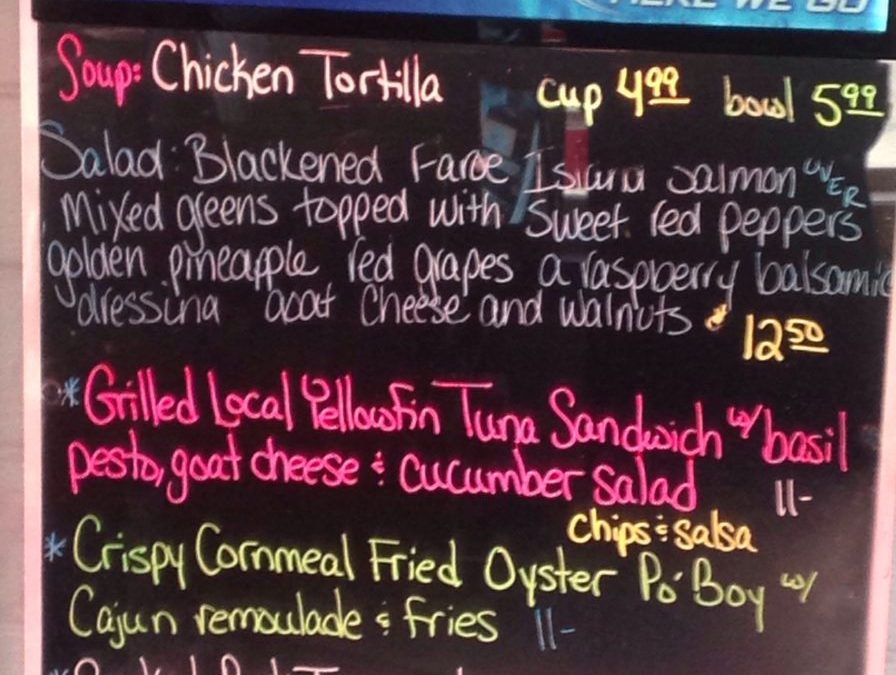 HERE WE GO
Soup: Chicken Tortilla cup 4.99 bowl 5.99
Salad: Blackened Faroe Island Salmon OVER
Mixed greens topped with Sweet red peppers
golden pineapple red grapes a raspberry balsamic
dressing goat Cheese and walnuts 12.50
*Grilled Local Yellowfin Tuna Sandwich w/ basil
pesto, goat cheese & cucumber salad 11-
chips & salsa
*Crispy Cornmeal Fried Oyster Po' Boy w/
Cajun remoulade & fries 11-